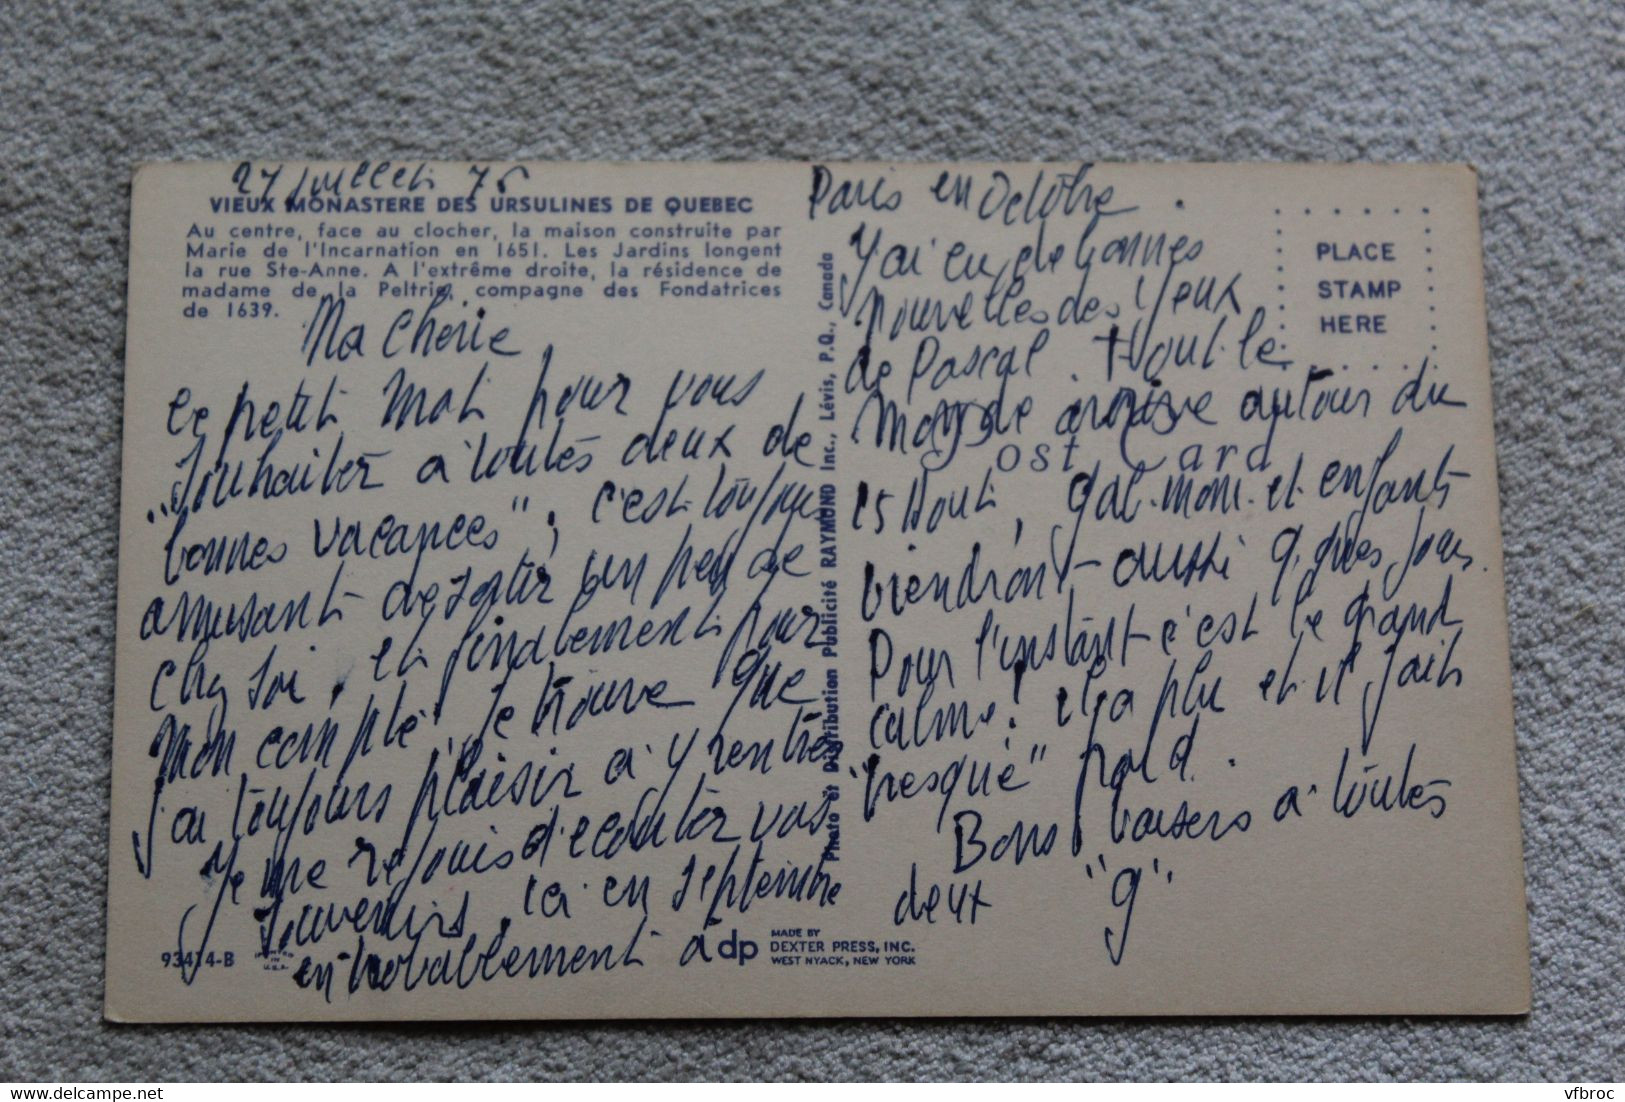 27 juillet 75
VIEUX MONASTERE DES URSULINES DE QUEBEC
Au centre, face au clocher, la maison construite par
Marie de l'Incarnation en 1651. Les Jardins longent
la rue Ste-Anne. A l'extrême droite, la résidence de
madame de la Peltrie, compagne des Fondatrices
de 1639.
Ma Chérie
Ce petit mot pour vous
"Souhaiter à toutes deux de
bonnes vacances", c'est toujours
amusant de sortir un peu de
chez soi, et finalement pour
mon compte je trouve que
j'ai toujours plaisir à y rentrer
Je me réjouis d'écouter vos
souvenirs, ici en septembre
en probablement à
93414-B
PRINTED
IN
U.S.A.
dp
MADE BY
DEXTER PRESS, INC.
WEST NYACK, NEW YORK
Photo et Distribution Publicité RAYMOND Inc., Lévis, P.Q., Canada
Paris en Octobre.
J'ai eu de bonnes
nouvelles des yeux
de Pascal. Tout le
monde arrive autour du
15 Août, et enfants
viendront aussi jours.
Pour l'instant c'est le grand
calme! il a plu et il fait
"presque" froid.
Bons baisers à toutes
deux "g"
Post Card
PLACE
STAMP
HERE
vfbroc